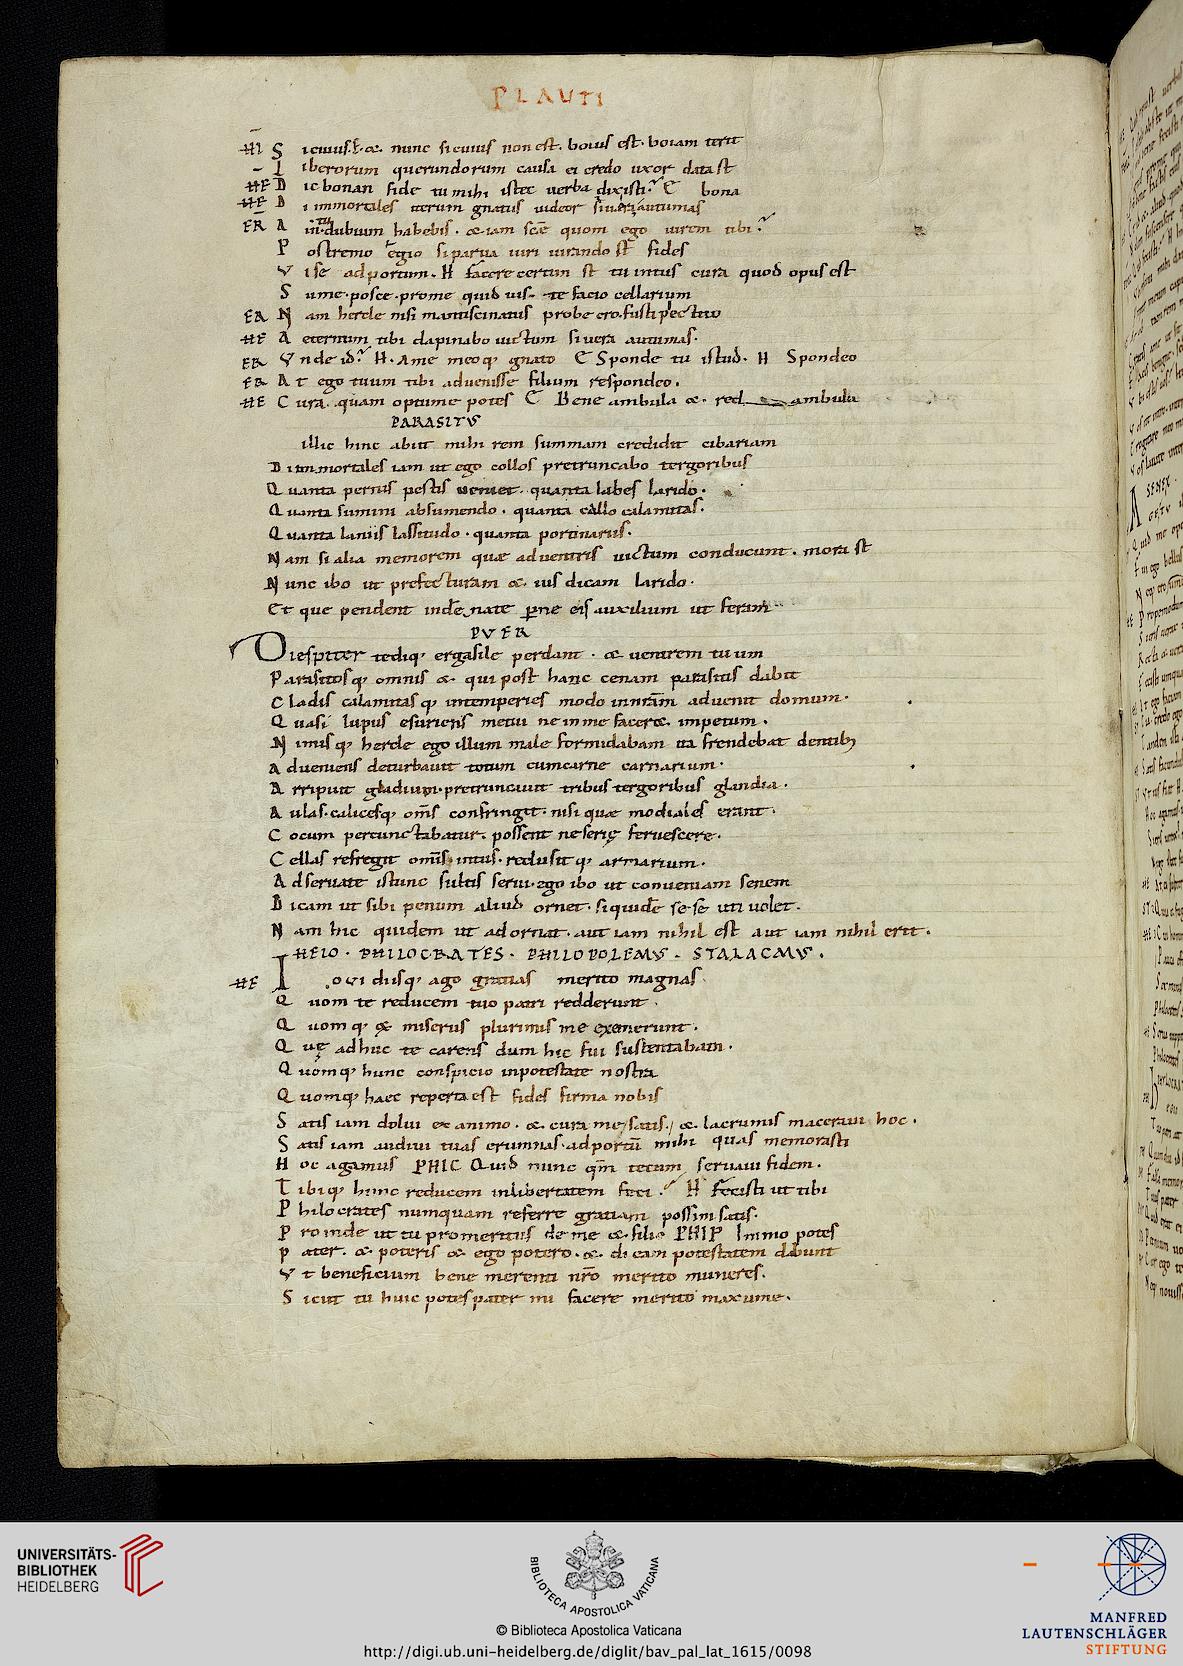 PLAUTI
HI S icuius.E. & nunc sicuius non est. boius est. boiam terit
I iberorum querundorum causa ei credo uxor data st
HE D ic bonan fide tu mihi istec verba dixisti? E bona
HE D i immortales iterum gnatus videor si vera autumas
ER A in dubium habebis. & iam scē quom ego iurem tibi?
P ostremo egio si parva iuri iurando st fides
V ise ad portum. H facere certum st tu intus cura quod opus est
S ume. posce. prome quid uis. te facio cellarium
ER N am hercle nisi mantiscinatus probe ero. fusti pectito
HE A eternum tibi dapinabo uictum si vera autumas.
ER V nde id? H. A me meoq; gnato E Sponde tu istud. H Spondeo
ER A t ego tuum tibi advenisse filium respondeo.
HE C ura quam optume potes E Bene ambula & red ambula
PARASITVS
illic hinc abiit mihi rem summam credidit cibariam
D i immortales iam ut ego collos pretruncabo tergoribus
Q uanta pernis pestis veniet. quanta labes larido.
Q uanta sumini absumendo. quanta callo calamitas.
Q uanta laniis lassitudo. quanta porcinariis.
N am si alia memorem quae ad ventris uictum conducunt. mora st
N unc ibo ut prefecturam & ius dicam larido.
Et que pendent inde nate perne eis auxilium ut feram
PVER
Diespiter tediq; ergasile perdant. & ventrem tuum
Parasitosq; omnis & qui post hanc cenam parasitis dabit
C ladis calamitas q; intemperies modo in nram advenit domum.
Q uasi lupus esuriens metui ne in me faceret impetum.
N imisq; hercle ego illum male formidabam ita frendebat dentib;
A dveniens deturbavit totum cum carne carnarium.
A rripuit gladium. pretruncavit tribus tergoribus glandia.
A ulas. calicesq; oms confringit. nisi quae modiales erant.
C ocum percunctabatur. possent ne serię fervescere.
C ellas refregit omis intus. reclusit q; armarium.
A dservate istunc sultis servi. ego ibo ut conveniam senem
D icam ut sibi penum aliud ornet. siquide se se uti volet.
N am hic quidem ut adornat. aut iam nihil est aut iam nihil erit.
HEIO. PHILOCRATES. PHILOPOLEMVS. STALACMVS.
HE I ovi diisq; ago gratias merito magnas
Q uom te reducem tuo patri redderunt.
Q uom q; ex miseriis plurimis me exemerunt.
Q uę adhuc te carens dum hic fui sustentabam.
Q uomq; hunc conspicio in potestate nostra
Q uomq; haec reperta est fides firma nobis
S atis iam dolui ex animo. & cura me satis. & lacrumis maceravi hoc.
S atis iam audivi tuas erumnas. ad portū mihi quas memorasti
H oc agamus PHIC Quid nunc qm tecum servavi fidem.
T ibiq; hunc reducem in libertatem feci. H Fecisti ut tibi
P hilocrates numquam referre gratiam possim satis.
P roinde ut tu promeritus de me & filio PHIP Immo potes
P ater. & poteris & ego potero. & di eam potestatem dabunt
V t beneficium bene merenti nro merito muneres.
S icut tu huic potes pater mi facere merito maxume.
UNIVERSITÄTS-
BIBLIOTHEK
HEIDELBERG
BIBLIOTECA APOSTOLICA VATICANA
© Biblioteca Apostolica Vaticana
http://digi.ub.uni-heidelberg.de/diglit/bav_pal_lat_1615/0098
MANFRED
LAUTENSCHLÄGER
STIFTUNG